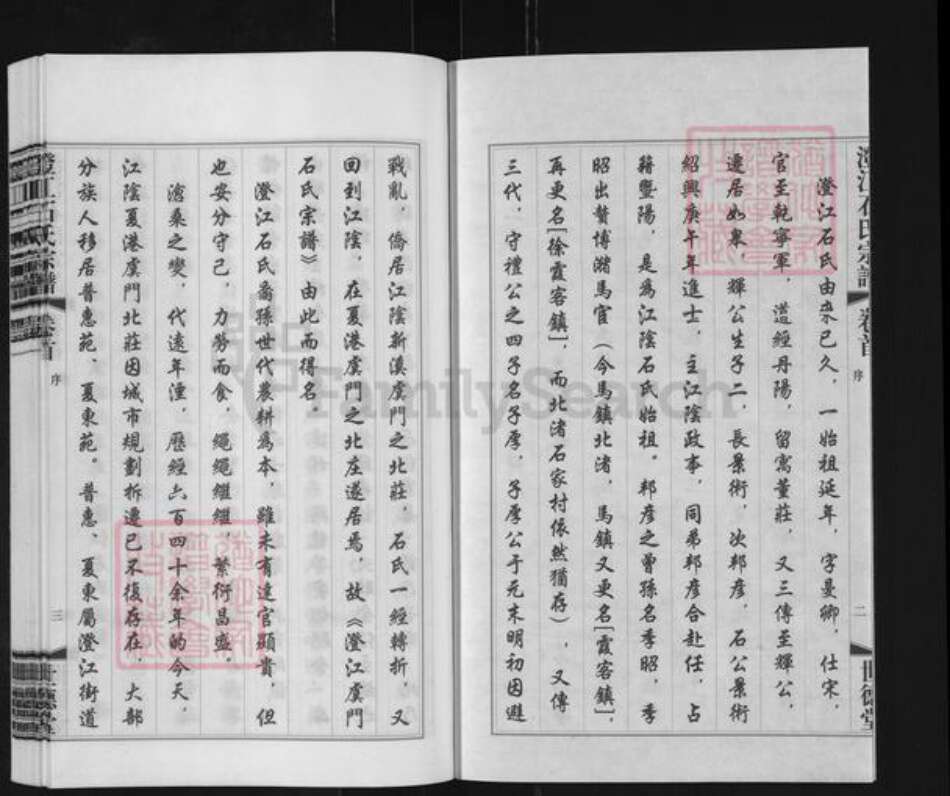 澄江石氏宗譜 卷首 序 二 世德堂
澄江石氏由來已久，一始祖延年，字曼卿，仕宋，
官至乾寧軍，道經丹陽，留寓董莊，又三傳至輝公，
遷居如皋，輝公生子二，長景術，次邦彥，石公景術
紹興庚午年進士，主江陰政事，同弟邦彥合赴任，占
籍暨陽，是為江陰石氏始祖。邦彥之曾孫名季昭，季
昭出贅博濰馬官（今馬鎮北渚，馬鎮又更名[霞客鎮]，
再更名[徐霞客鎮]，而北渚石家村依然猶存），又傳
三代，守禮公之四子名子厚，子厚公于元末明初因避
戰亂，僑居江陰新溪虞門之北莊，石氏一經轉折，又
回到江陰，在夏港虞門之北庄遂居焉，故《澄江虞門
石氏宗譜》由此而得名。
澄江石氏裔孫世代農耕為本，雖未有達官顯貴，但
也安分守己，力勞而食，繩繩繼繼，繁衍昌盛。
滄桑之變，代遠年湮，歷經六百四十余年的今天，
江陰夏港虞門北莊因城市規劃拆遷已不復存在，大部
分族人移居普惠苑、夏東苑。普惠、夏東屬澄江街道
澄江石氏宗譜 卷首 序 三 世德堂
FamilySearch